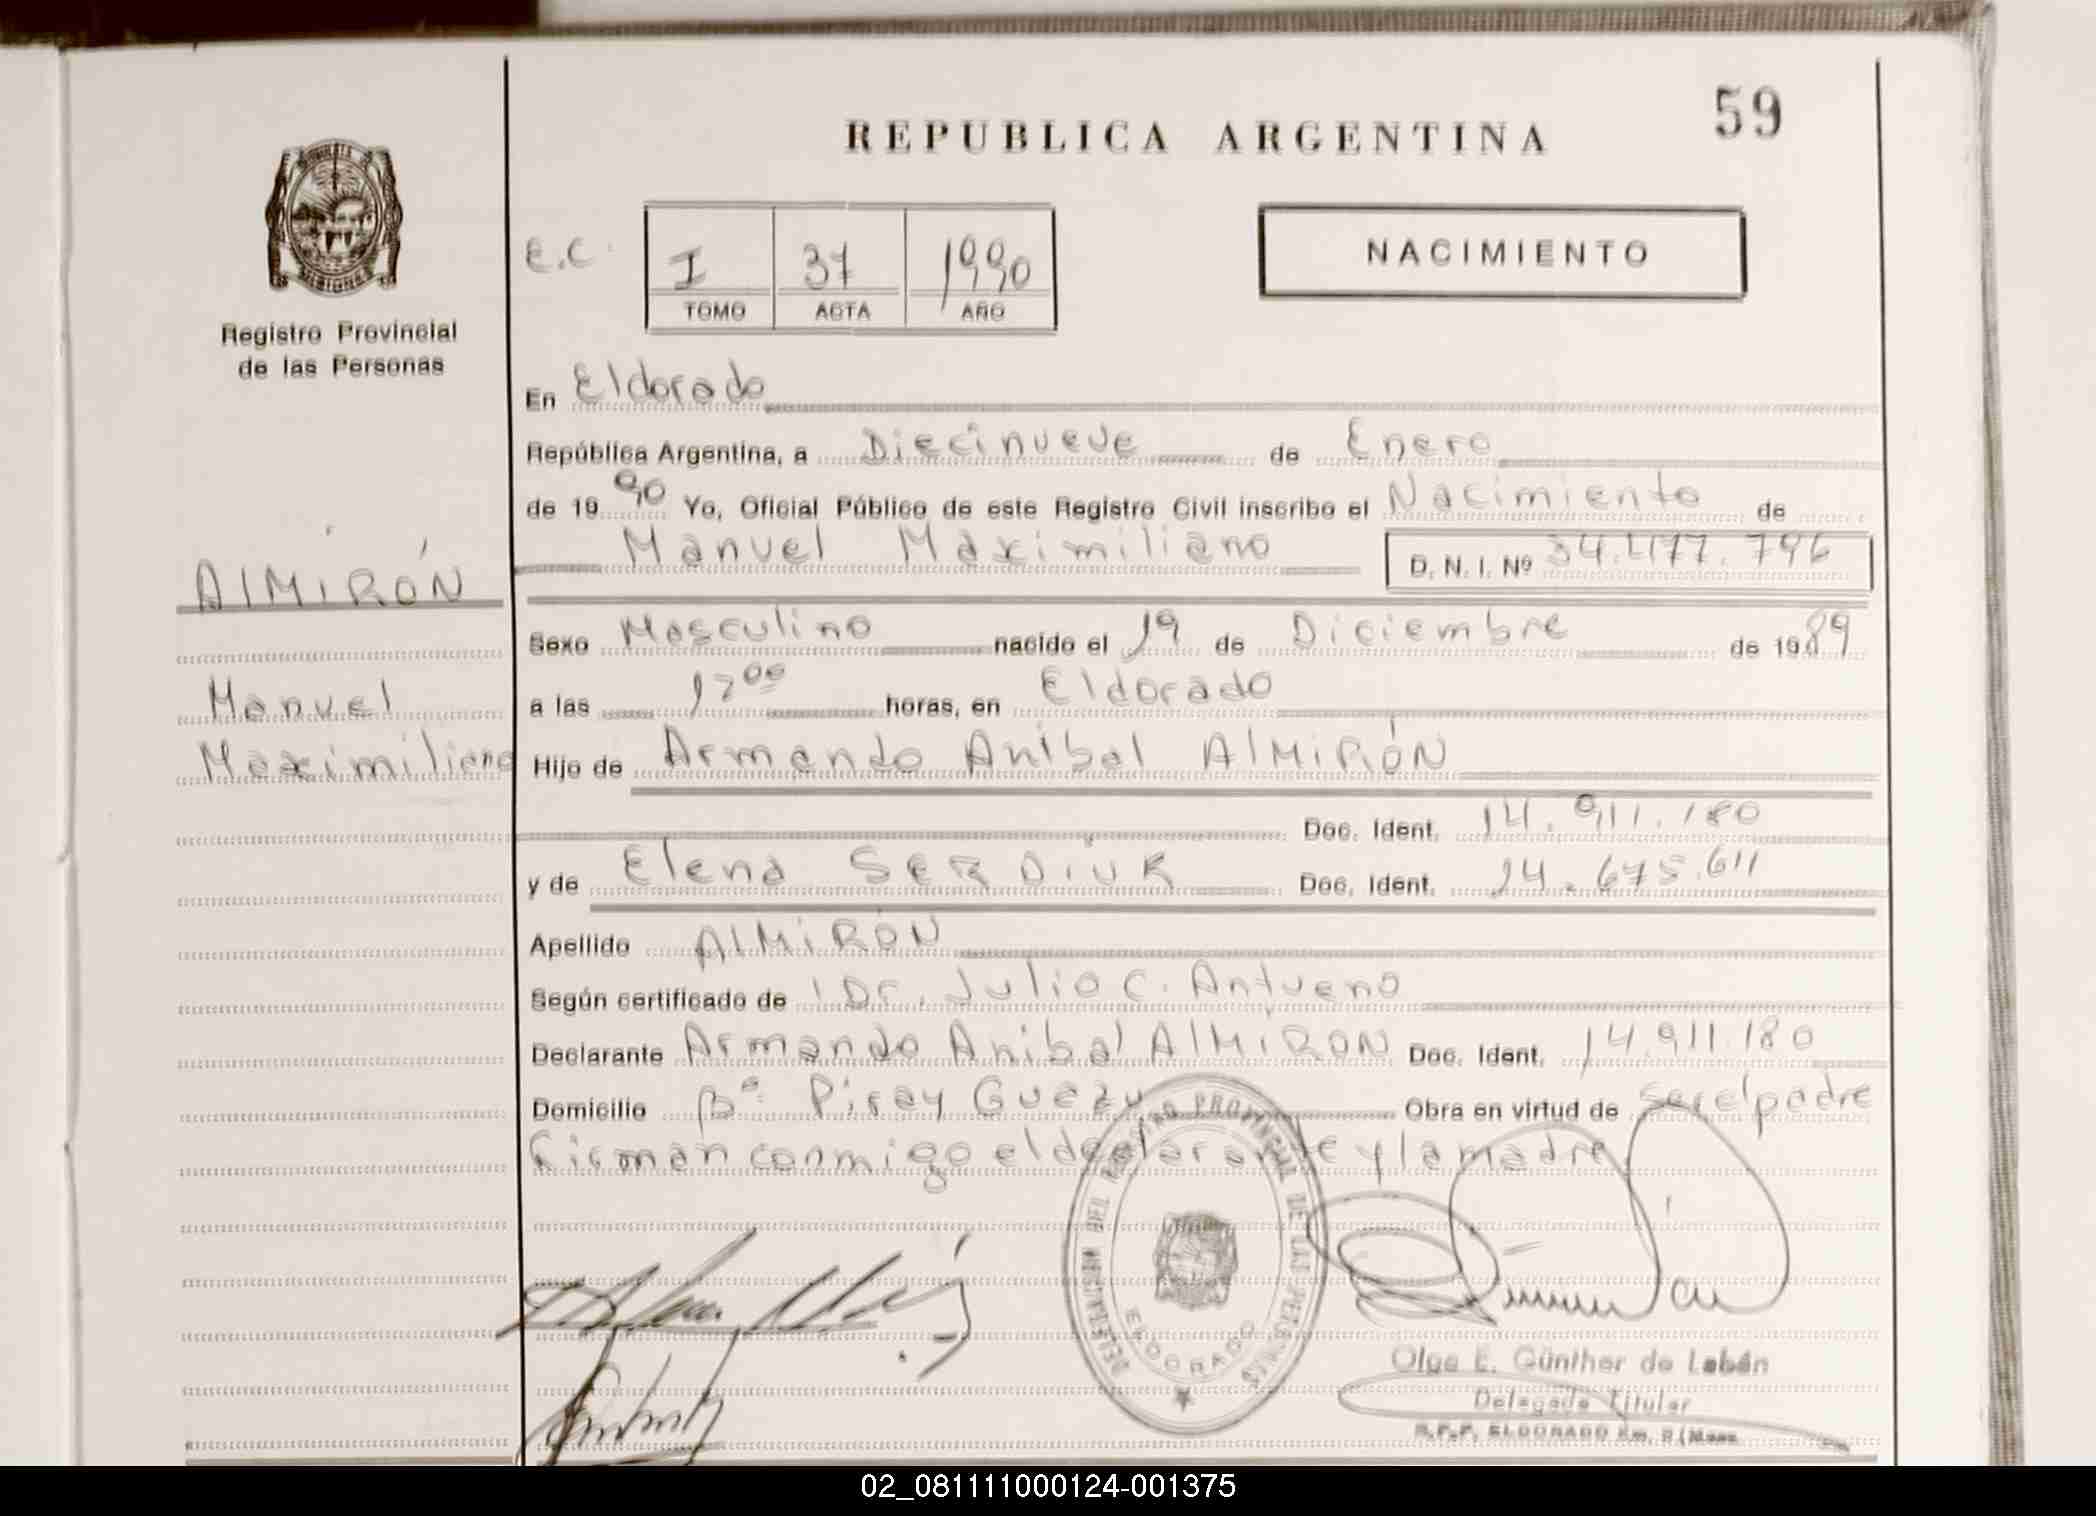 59
REPUBLICA ARGENTINA
Registro Provincial
de las Personas
E.C.
I 37 1990
TOMO ACTA AÑO
NACIMIENTO
En Eldorado
República Argentina, a Diecinueve de Enero
de 1990 Yo, Oficial Público de este Registro Civil inscribo el Nacimiento de
Manuel Maximiliano D.N.I. Nº 34.477.796
AlMiRÓN
Sexo Masculino nacido el 19 de Diciembre de 1989
Manuel
a las 1700 horas, en Eldorado
Maximiliano
Hijo de Armando Anibal AlMiRÓN
Doc. Ident. 14.911.180
y de Elena SERDiUK Doc. Ident. 14.675.611
Apellido AlMiRÓN
Según certificado de Dr. Julio C. Antueno
Declarante Armando Anibal AlMiRON Doc. Ident. 14.911.180
Domicilio Bº Piray Guazu Obra en virtud de ser el padre
Firman conmigo el declarante y la madre
DELEGACION DEL REGISTRO PROVINCIAL DE LAS PERSONAS
ELDORADO
Olga E. Günther de Labán
Delegada Titular
R.P.P. ELDORADO Km.
02_081111000124-001375